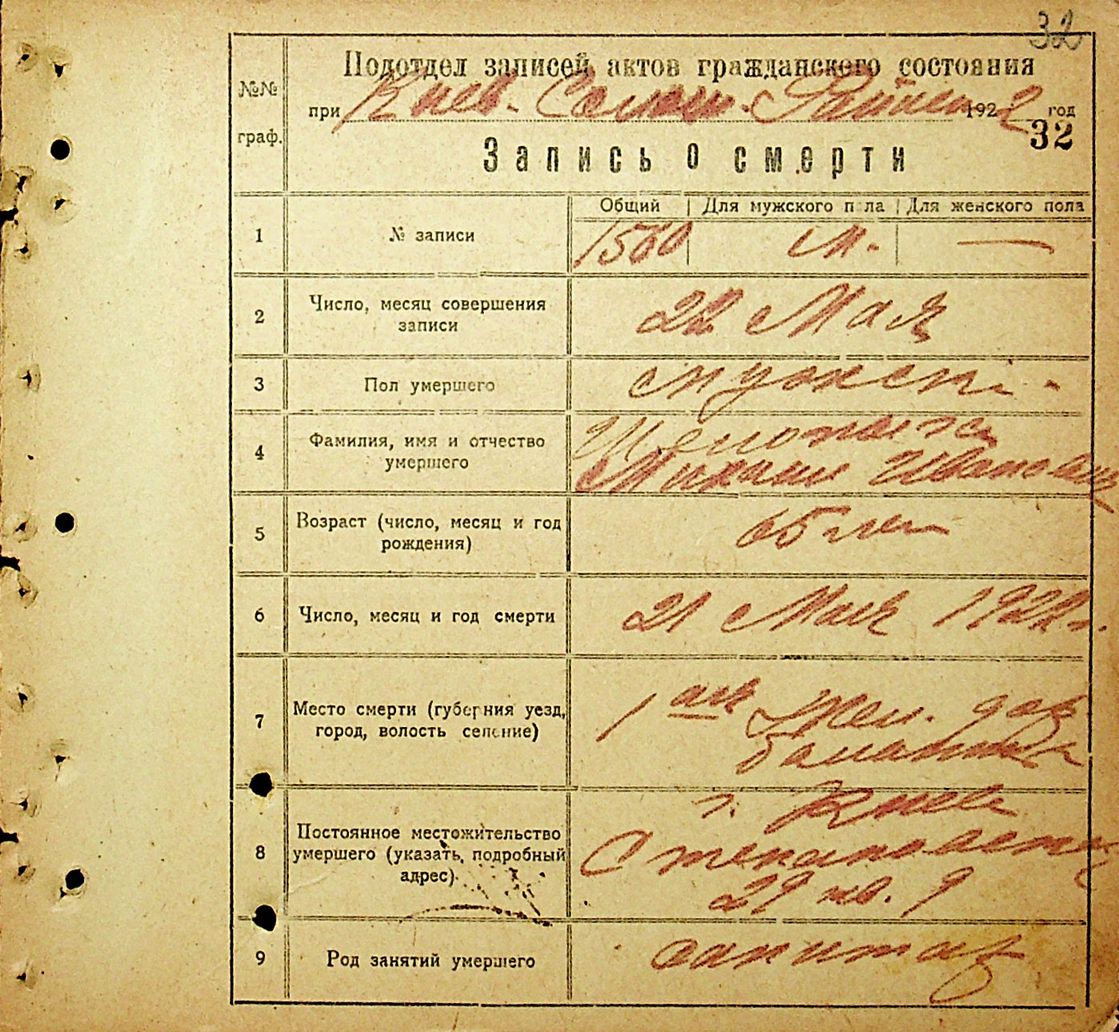 32
Подотдел записей актов гражданского состояния
№№ граф.
при Киев. Солом. Райисп 1922 год
32
Запись о смерти
Общий Для мужского пола Для женского пола
1 № записи 1560 м. —
2 Число, месяц совершения
записи 22 Мая
3 Пол умершего мужск.
4 Фамилия, имя и отчество
умершего
Михаил Иванович
5 Возраст (число, месяц и год
рождения) 65 лет
6 Число, месяц и год смерти 21 Мая 1922 г.
7 Место смерти (губерния уезд,
город, волость селение) 1ая Жел. дор
больница
г. Киев
8 Постоянное местожительство
умершего (указать, подробный
адрес) Степановская
29 кв. 9
9 Род занятий умершего санитар